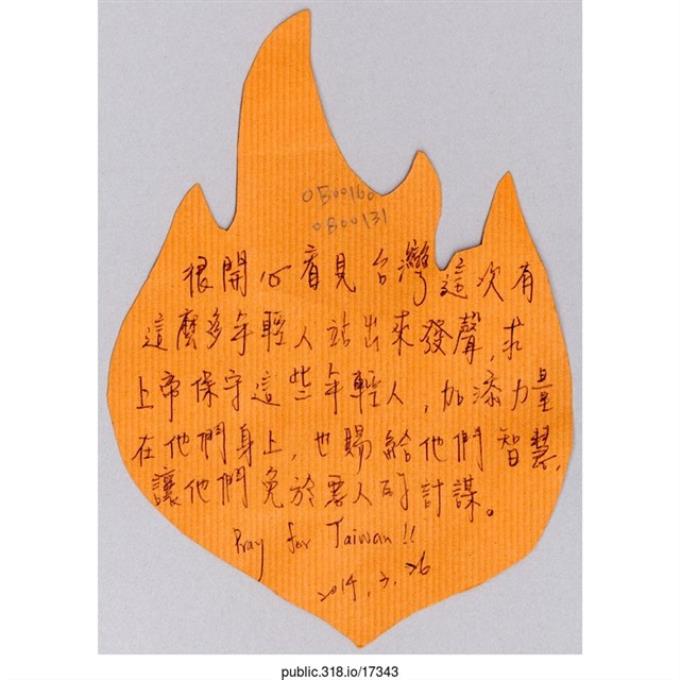 0B00160
0B00131
很開心看見台灣這次有
這麼多年輕人站出來發聲,求
上帝保守這些年輕人,加添力量
在他們身上,也賜給他們智慧,
讓他們免於惡人的計謀。
Pray for Taiwan!!
2014.3.26
public.318.io/17343